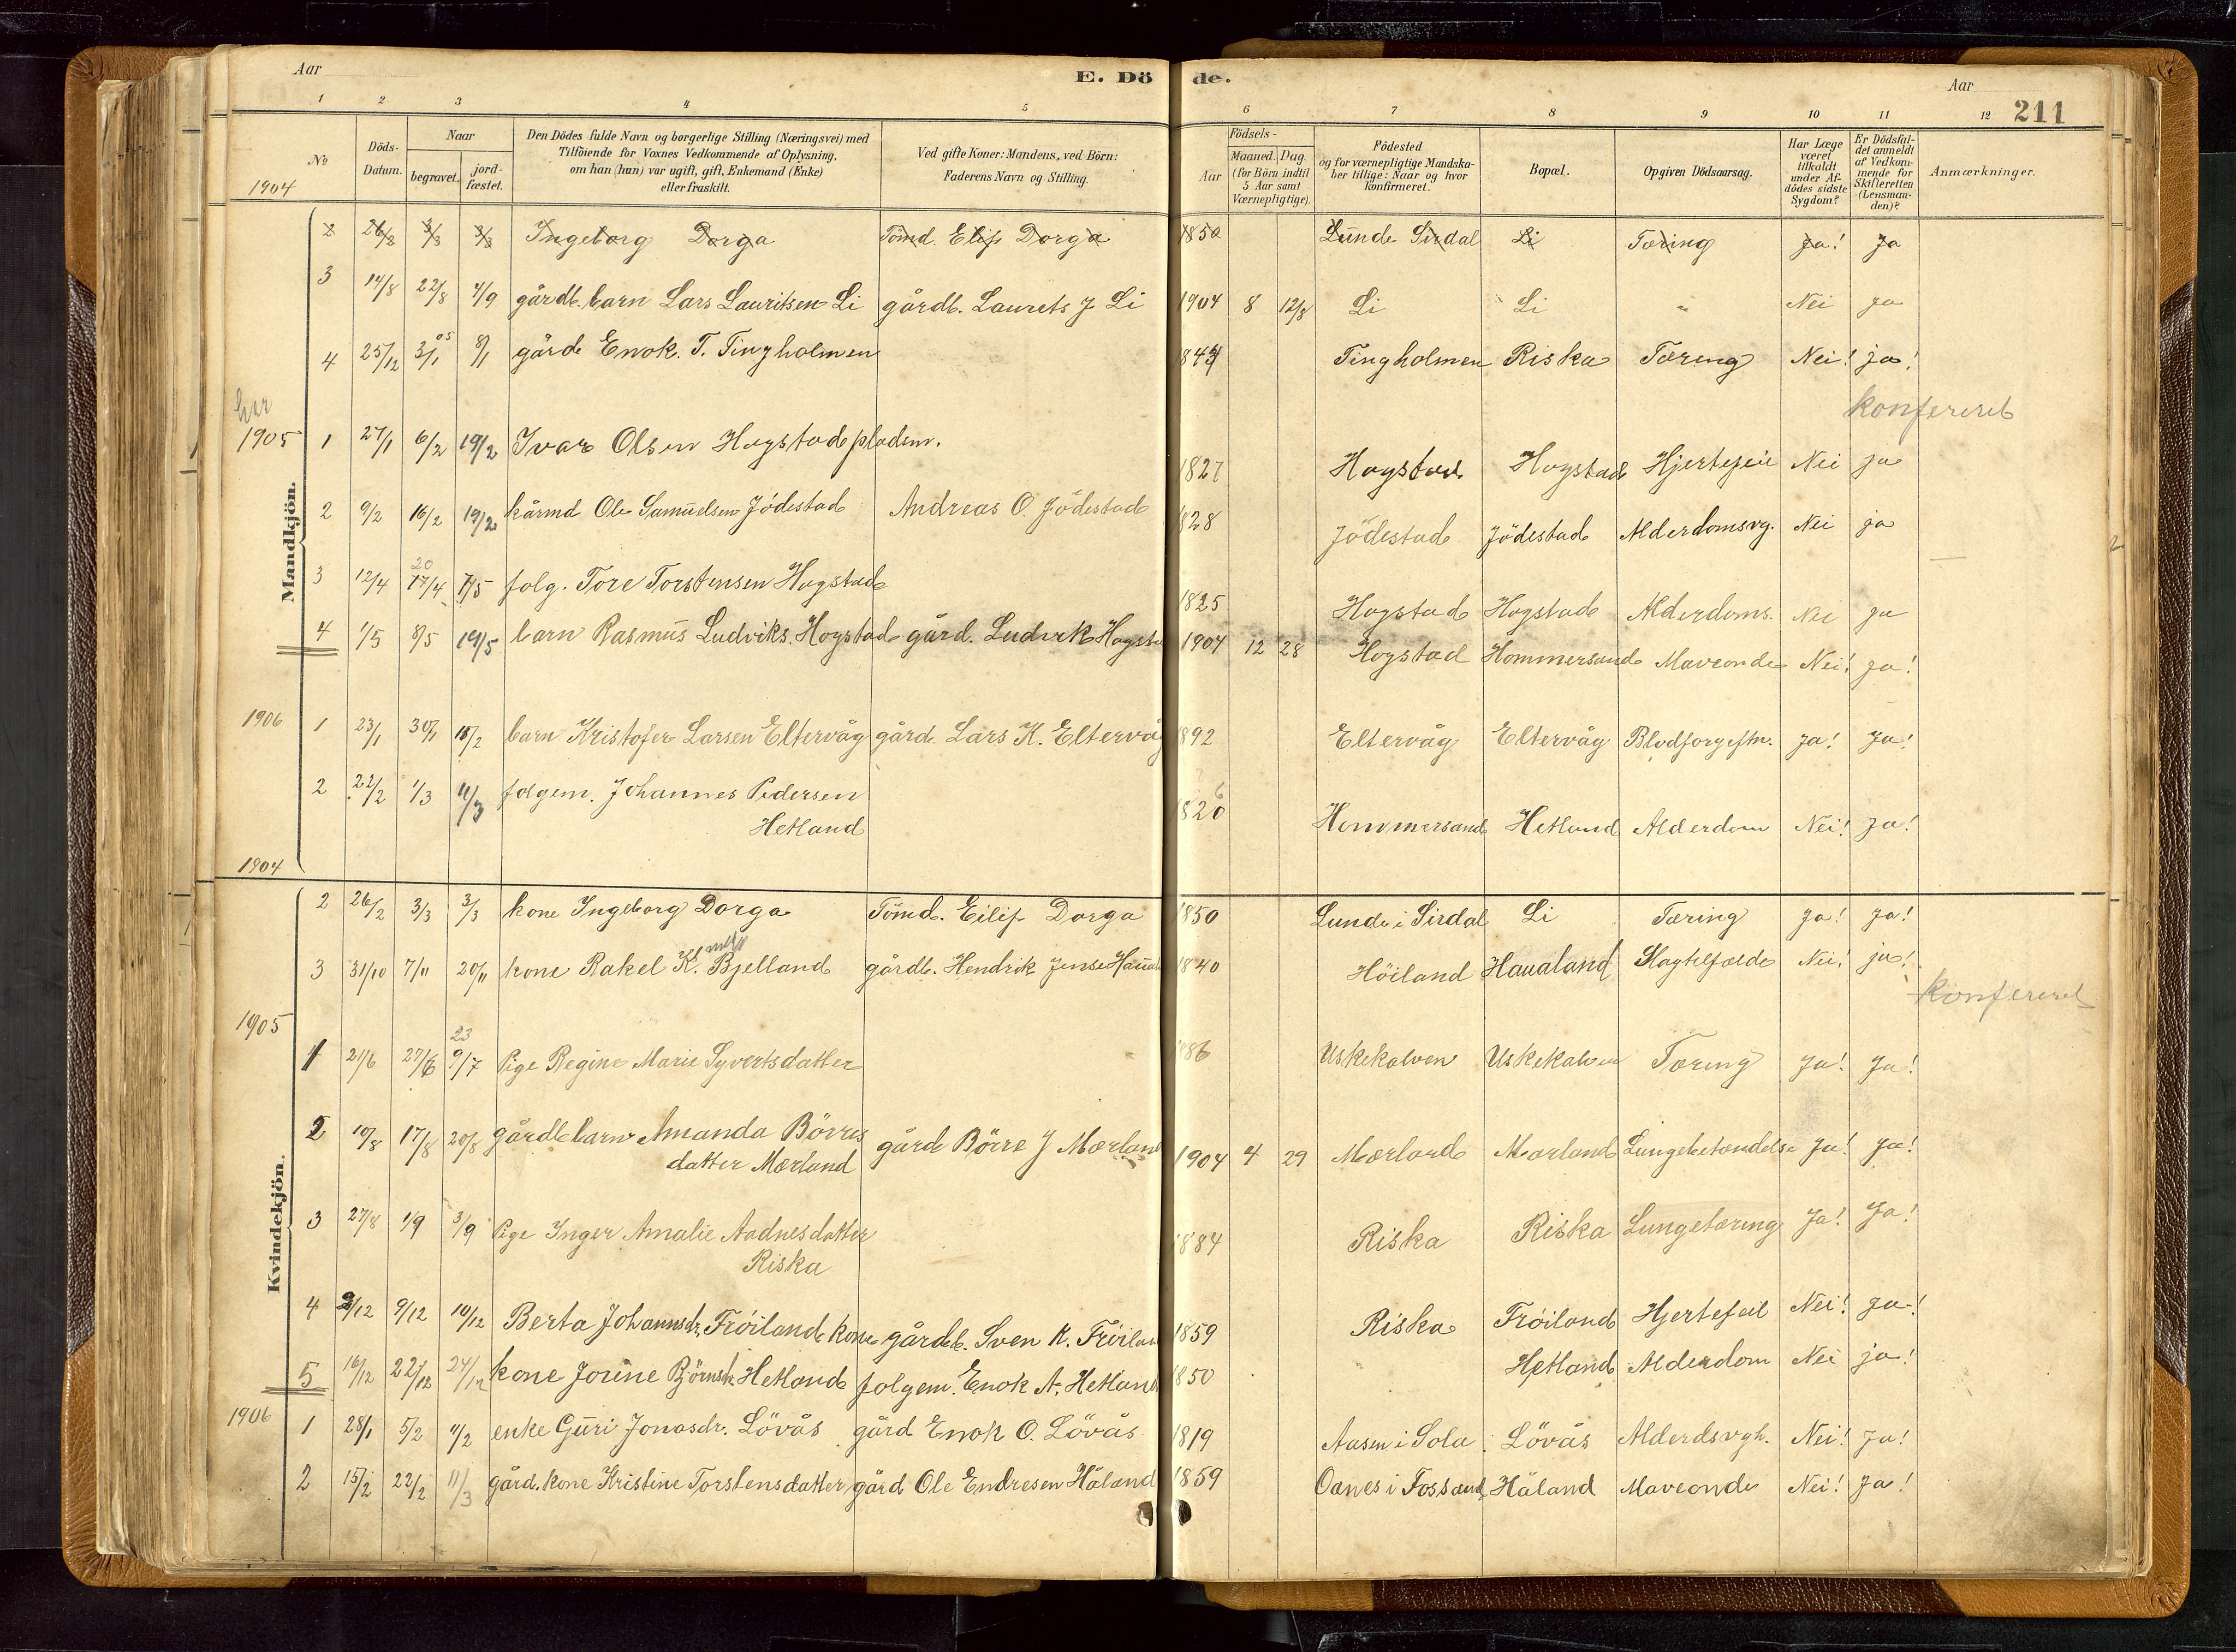 Aar E. Dö de. Aar
1 2 3 4 5 6 7 8 9 10 11 12 211
No
Döds-Datum.
Naar
begravet.
jord-fæstet.
Den Dödes fulde Navn og borgerlige Stilling (Næringsvei) med
Tilföiende for Voxnes Vedkommende af Oplysning,
om han (hun) var ugift, gift, Enkemand (Enke)
eller fraskilt.
Ved gifte Koner: Mandens, ved Börn:
Faderens Navn og Stilling.
Födsels-
Aar
Maaned. Dag.
(for Börn indtil
5 Aar samt
Værnepligtige).
Födested
og for værnepligtige Mandska-
ber tillige: Naar og hvor
konfirmeret.
Bopæl.
Opgiven Dödsaarsag.
Har Læge
været
tilkaldt
under Af-
dödes sidste
Sygdom?
Er Dödsfal-
det anmeldt
af Vedkom-
mende for
Skifteretten
(Lensman-
den)?
Anmærkninger.
1904
Mandkjön.
2 26/2 3/3 3/3 Ingeborg Dorga Tömd. Elif Dorga 1850 Lunde Sirdal Li Tæring Ja! Ja
3 14/8 22/8 4/9 gårdb. barn Lars Lauritsen Li gårdb. Laurets J Li 1904 8 12/8 Li Li " Nei ja
4 25/12 3/1 05 8/1 gårdb Enok. T. Tingholmen 1844 Tingholmen Riska Tæring Nei! ja!
konfereret
1905 1 27/1 6/2 19/2 Ivar Olsen Hogstad pladsm. 1827 Hogstad Hogstad Hjertefeil Nei ja
2 9/2 16/2 19/2 kårmd Ole Samuelsen Jödestad Andreas O. Jödestad 1828 Jödestad Jödestad Alderdomsvg. Nei ja
3 12/4 20 17/4 7/5 folg. Tore Torstensen Hogstad 1825 Hogstad Hogstad Alderdoms. Nei ja
4 1/5 8/5 19/5 barn Rasmus Ludviks. Hogstad gård. Ludvik Hogsta 1904 12 28 Hogstad Hommersand Maveonde Nei! ja!
1906 1 23/1 30/1 18/2 barn Kristofer Larsen Eltervåg gård. Lars K. Eltervåg 1892 Eltervåg Eltervåg Blodforgiftn. Ja! Ja!
2 22/2 1/3 11/3 folgem. Johannes Pedersen
Hetland 1820 6 Hommersand Hetland Alderdom Nei! ja!
1904
Kvindekjön.
2 26/2 3/3 3/3 kone Ingeborg Dorga Tömd. Eilif Dorga 1850 Lunde i Sirdal Li Tæring Ja! Ja!
3 31/10 7/11 20/11 kone Rakel K. Bjelland gårdb. Hendrik Jense Haual 1840 Höiland Haualand Slagtilfælde Nei! ja!
konfereret
1905
1 21/6 27/6 23 9/7 Pige Regine Marie Syvertsdatter 1886 Uskekalven Uskekalven Tæring Ja! Ja!
2 10/8 17/8 20/8 gårdb barn Amanda Börres
datter Mærland gårdb Börre J Mærland 1904 4 29 Mærland Mærland Lungebetændelse Ja! Ja!
3 27/8 1/9 3/9 Pige Inger Amalie Aadnesdatter
Riska 1884 Riska Riska Lungetæring Ja! Ja!
4 3/12 9/12 10/12 Berta Johannsdr. Fröiland kone gårdb. Sven K. Fröilan 1859 Riska Fröiland Hjertefeil Nei! Ja!
5 16/12 22/12 24/12 kone Jorine Björnsdr. Hetland folgem. Enok A. Hetland 1850 Hetland Alderdom Nei ja!
1906 1 28/1 5/2 11/2 enke Guri Jonasdr. Lövås gård Enok O. Lövås 1819 Aasen i Sola Lövås Alderdsvgh. Nei! Ja!
2 15/2 22/2 11/3 gård. kone Kristine Torstensdatter gård Ole Endresen Håland 1859 Oanes i Fossand Håland Maveonde Nei! Ja!